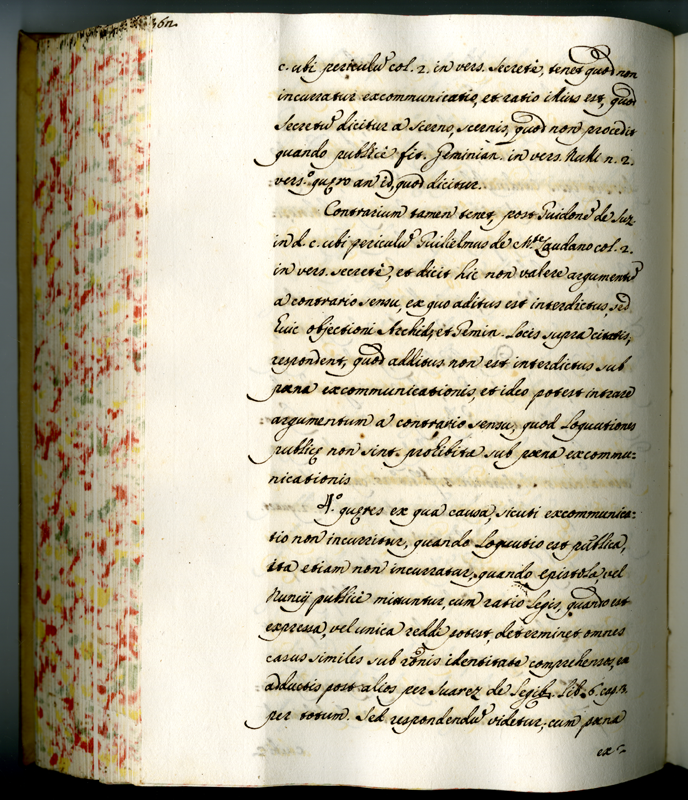 c. ubi periculũ col. 2. in vers. secretè, tenet quod non
incurratur excommunicatio, et ratio illius est, quod
secretũ dicitur a scerno, scernis, quod non procedit
quando publicè fit. Geminian. in vers. Nuli n. 2.
vers.º quęro an id, quod dicitur.
Contrarium tamen tenet, post Guidonẽ de Suz.
in d. c. ubi periculũ Guilielmus de Mte Laudano col. 2.
in vers. secretè, et dicit hic non valere argumentũ
a contrario sensu, ex quo aditus est interdictus, sed
huic objectioni Archid. et Gemin. locis supra citatis,
respondent, quod additus non est interdictus sub
pæna excommunicationis, et ideo potest intrare
argumentum a contrario sensu, quod loquutiones
publicę non sint prohibitæ sub pæna excommu-
nicationis
4.º quęres ex qua causa, sicuti excommunica-
tio non incurritur, quando loquutio est publica,
ita etiam non incurratur, quando epistola, vel
Nuncij publicè mittuntur, cum ratio legis, quando est
expressa, vel unica reddi potest, determinet omnes
casus similes sub rõnis identitate comprehensos, ex
adductis post alios per Suarez de Legib. lib. 6. cap. 3.
per totum. Sed respondendũ videtur, cum pæna
ex